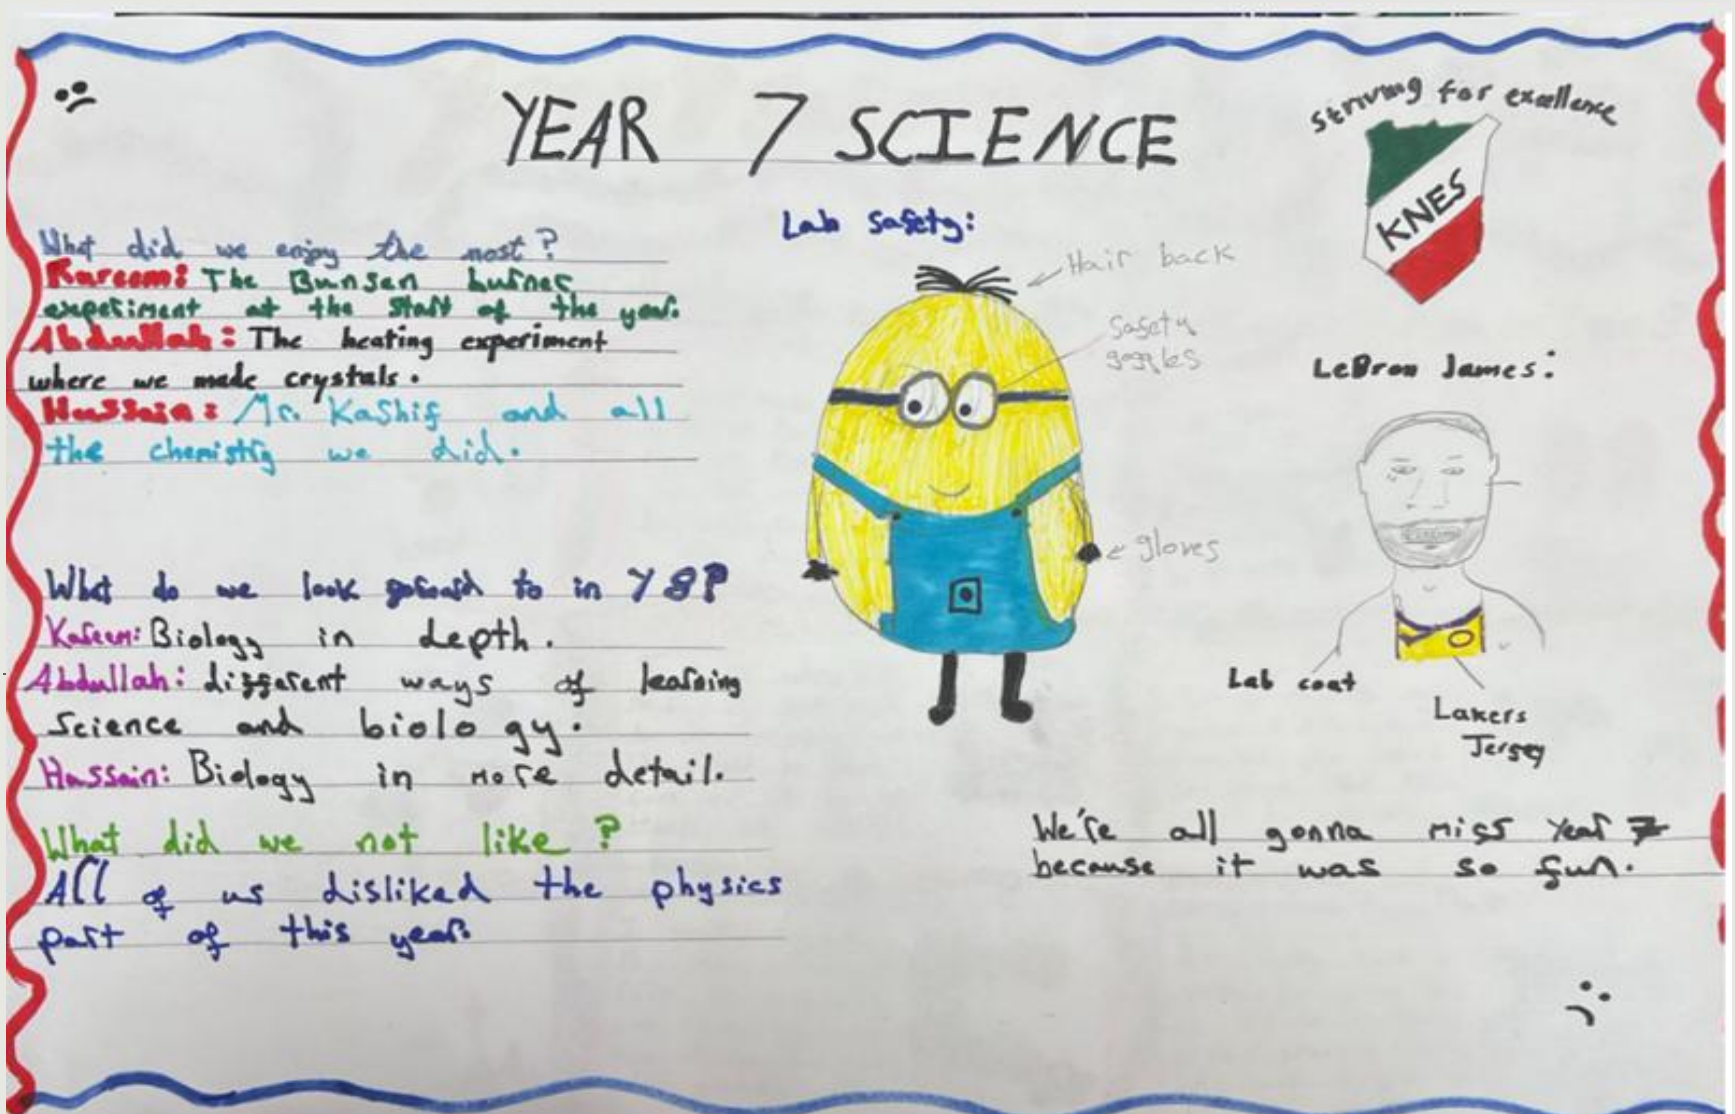 YEAR 7 SCIENCE
Striving for excellence
KNES
What did we enjoy the most?
Kareem: The Bunsen burner
experiment at the start of the year.
Abdullah: The heating experiment
where we made crystals.
Hussain: Mr. Kashif and all
the chemistry we did.
What do we look forward to in Y8?
Kareem: Biology in depth.
Abdullah: different ways of learning
science and biology.
Hussain: Biology in more detail.
What did we not like?
All of us disliked the physics
part of this year.
Lab safety:
Hair back
Safety
goggles
gloves
LeBron James:
Lab coat
Lakers
Jersey
We're all gonna miss year 7
because it was so fun.